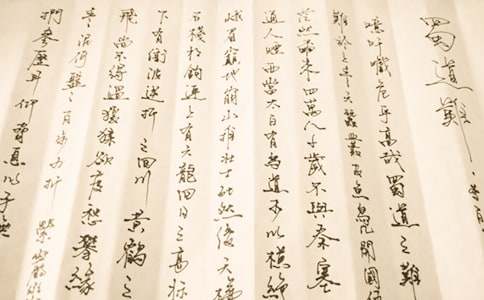 蜀道難 李白
噫吁戲危乎高哉蜀道之難
難於上青天蠶叢及魚鳧開國
茫然爾來四萬八千歲不與秦塞
通人煙西當太白有鳥道可以橫絕
峨眉巔地崩山摧壯士死然後天梯
石棧相鉤連上有六龍回日之高標
下有衝波逆折之回川黃鶴之
飛尚不得過猿猱欲度愁攀緣
青泥何盤盤百步九折縈巖
捫參歷井仰脅息以手